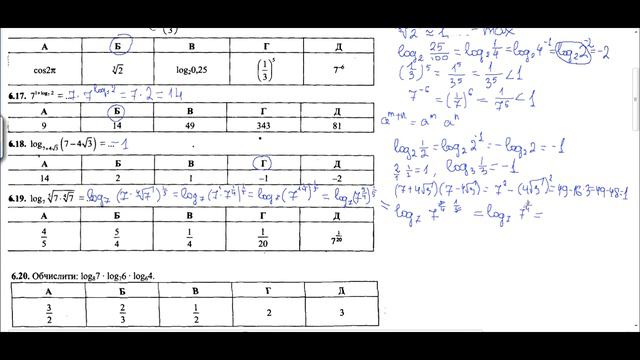 А Б В Г Д
cos2π ∛2 log₂0,25 (1/3)⁵ 7⁻⁶
6.17. 7^(1+log₇2) = ...7 · 7^(log₇2) = 7 · 2 = 14
А Б В Г Д
9 14 49 343 81
6.18. log_(7+4√3)(7−4√3) = ... −1
А Б В Г Д
14 2 1 −1 −2
6.19. log₇
А Б В Г Д
4/5 5/4 1/4 1/20 7^(1/20)
6.20. Обчислити: log₈7 · log₇6 · log₆4.
А Б В Г Д
3/2 2/3 1/2 2 3
log₂ 25/100 = log₂ 1/4 = log₂ 4⁻¹ = log₂ 2⁻² = −2
(1/3)⁵ = 1⁵/3⁵ = 1/3⁵ < 1
7⁻⁶ = (1/7)⁶ = 1/7⁶ < 1
a^(m+n) = a^m a^n
log₂ 1/2 = log₂ 2⁻¹ = −log₂ 2 = −1
log₃ 1/3 = −1
(7+4√3)(7−4√3) = 7² − (4√3)² = 49−16·3=49−48=1